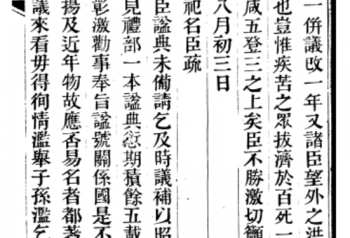 一併議改一年又諸臣望外之洪
也豈惟疾苦之眾拔濟於百死一
咸五登三之上矣臣不勝激切籲
八月初三日
祀名臣疏
臣謚典未備請乞及時議補以照
見禮部一本謚典愆期積餘五載
彰激勸事奉旨謚號關係國是不
揚及近年物故應否易名者都著
議來看毋得徇情濫舉子孫濫乞